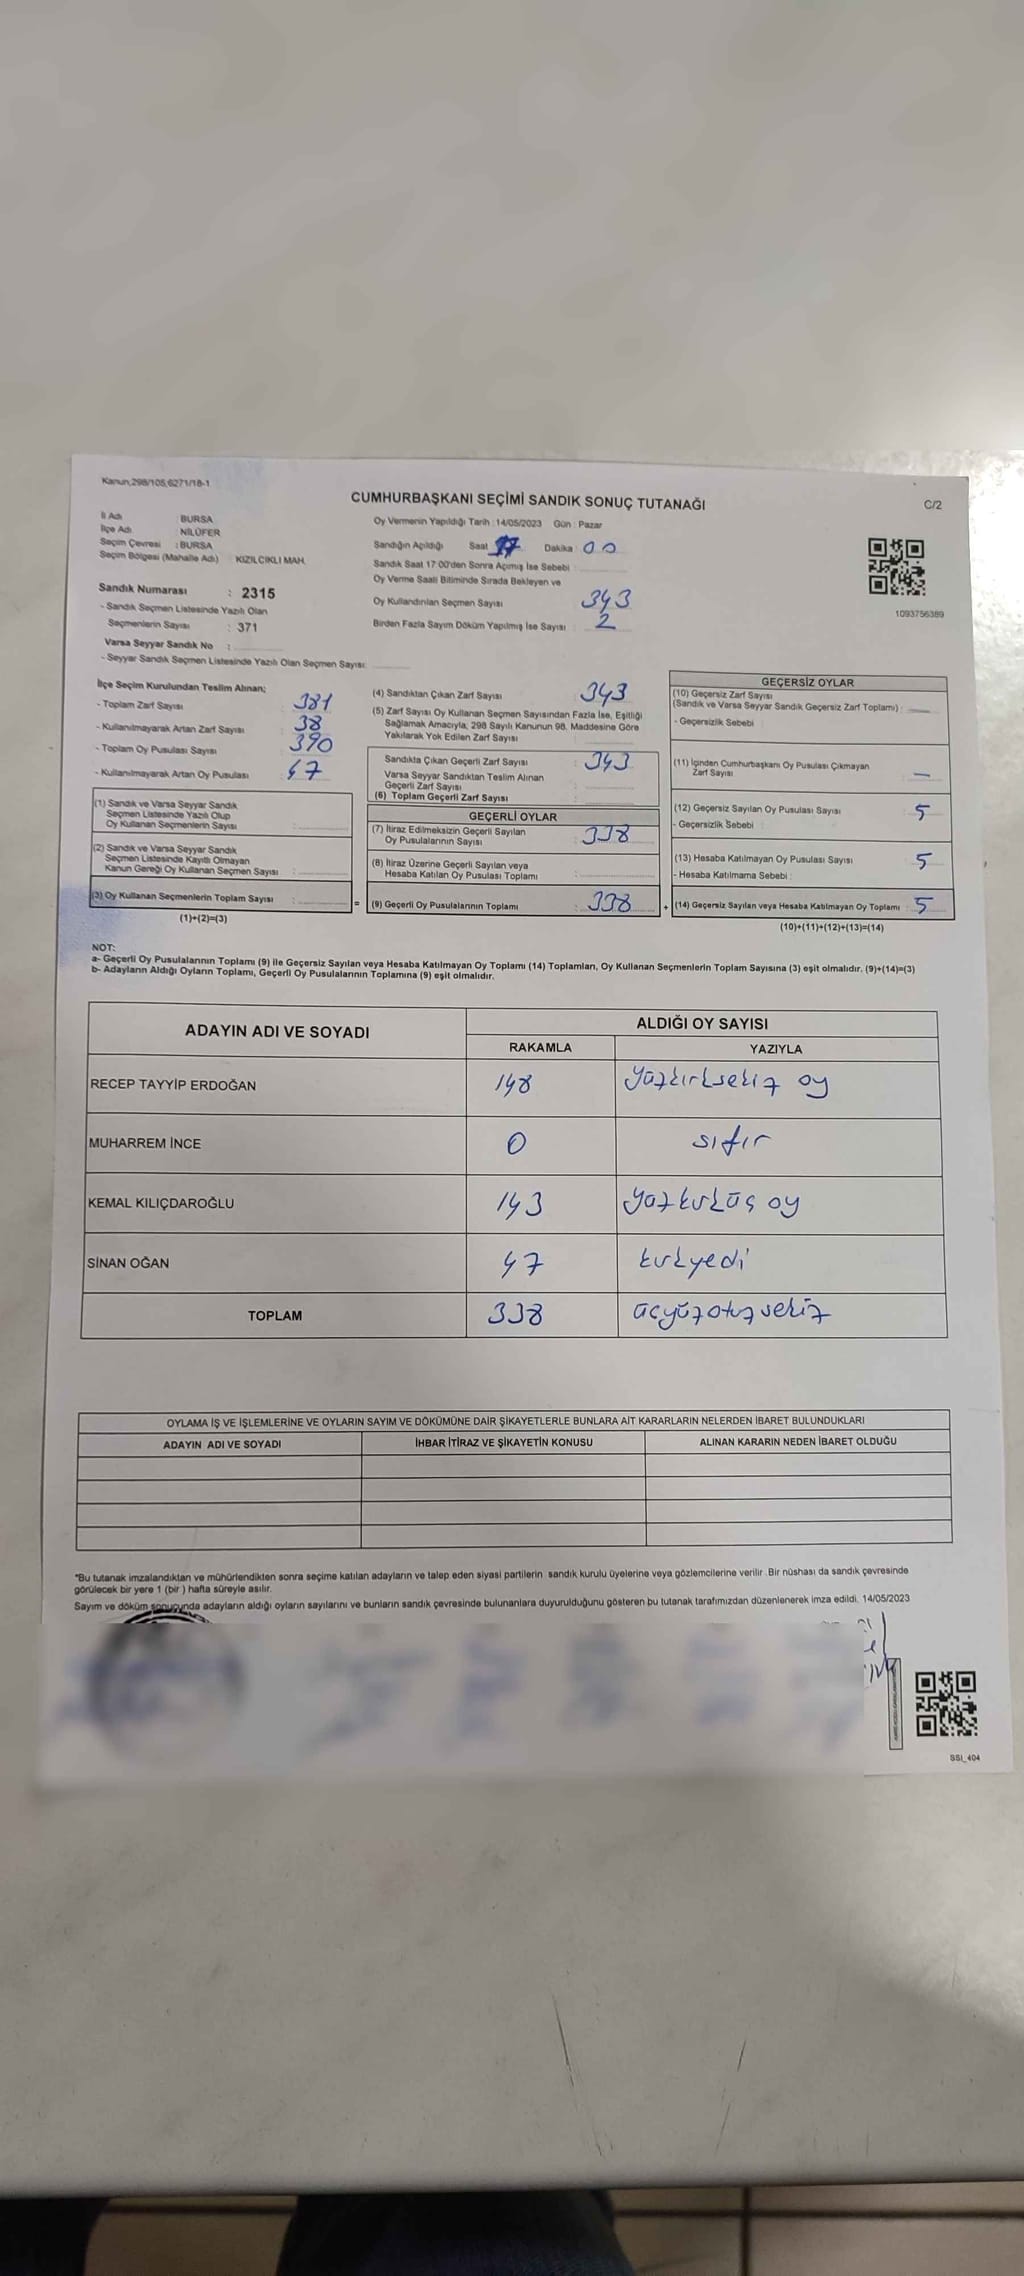 Kanun,298/105,6271/18-1
CUMHURBAŞKANI SEÇİMİ SANDIK SONUÇ TUTANAĞI
C/2
İl Adı : BURSA
İlçe Adı : NİLÜFER
Seçim Çevresi : BURSA
Seçim Bölgesi (Mahalle Adı) : KIZILCIKLI MAH.
Oy Vermenin Yapıldığı Tarih : 14/05/2023 Gün : Pazar
Sandığın Açıldığı Saat 17 Dakika : 00
Sandık Saat 17:00'den Sonra Açımış İse Sebebi :
Oy Verme Saati Bitiminde Sırada Bekleyen ve
Oy Kullandırılan Seçmen Sayısı : 343
Birden Fazla Sayım Döküm Yapılmış İse Sayısı : 2
1093756389
Sandık Numarası : 2315
- Sandık Seçmen Listesinde Yazılı Olan
Seçmenlerin Sayısı : 371
Varsa Seyyar Sandık No :
- Seyyar Sandık Seçmen Listesinde Yazılı Olan Seçmen Sayısı:
İlçe Seçim Kurulundan Teslim Alınan;
- Toplam Zarf Sayısı : 381
- Kullanılmayarak Artan Zarf Sayısı : 38
- Toplam Oy Pusulası Sayısı : 390
- Kullanılmayarak Artan Oy Pusulası : 47
(1) Sandık ve Varsa Seyyar Sandık
Seçmen Listesinde Yazılı Olup
Oy Kullanan Seçmenlerin Sayısı :
(2) Sandık ve Varsa Seyyar Sandık
Seçmen Listesinde Kayıtlı Olmayan
Kanun Gereği Oy Kullanan Seçmen Sayısı :
(3) Oy Kullanan Seçmenlerin Toplam Sayısı :
(1)+(2)=(3)
(4) Sandıktan Çıkan Zarf Sayısı : 343
(5) Zarf Sayısı Oy Kullanan Seçmen Sayısından Fazla İse, Eşitliği
Sağlamak Amacıyla; 298 Sayılı Kanunun 98. Maddesine Göre
Yakılarak Yok Edilen Zarf Sayısı :
Sandıkta Çıkan Geçerli Zarf Sayısı : 343
Varsa Seyyar Sandıktan Teslim Alınan
Geçerli Zarf Sayısı :
(6) Toplam Geçerli Zarf Sayısı :
GEÇERLİ OYLAR
(7) İtiraz Edilmeksizin Geçerli Sayılan
Oy Pusulalarının Sayısı : 338
(8) İtiraz Üzerine Geçerli Sayılan veya
Hesaba Katılan Oy Pusulası Toplamı :
= (9) Geçerli Oy Pusulalarının Toplamı : 338
GEÇERSİZ OYLAR
(10) Geçersiz Zarf Sayısı
(Sandık ve Varsa Seyyar Sandık Geçersiz Zarf Toplamı) :
- Geçersizlik Sebebi :
(11) İçinden Cumhurbaşkanı Oy Pusulası Çıkmayan
Zarf Sayısı : —
(12) Geçersiz Sayılan Oy Pusulası Sayısı : 5
- Geçersizlik Sebebi :
(13) Hesaba Katılmayan Oy Pusulası Sayısı : 5
- Hesaba Katılmama Sebebi :
+ (14) Geçersiz Sayılan veya Hesaba Katılmayan Oy Toplamı : 5
(10)+(11)+(12)+(13)=(14)
NOT:
a- Geçerli Oy Pusulalarının Toplamı (9) ile Geçersiz Sayılan veya Hesaba Katılmayan Oy Toplamı (14) Toplamları, Oy Kullanan Seçmenlerin Toplam Sayısına (3) eşit olmalıdır. (9)+(14)=(3)
b- Adayların Aldığı Oyların Toplamı, Geçerli Oy Pusulalarının Toplamına (9) eşit olmalıdır.
ADAYIN ADI VE SOYADI ALDIĞI OY SAYISI
RAKAMLA YAZIYLA
RECEP TAYYİP ERDOĞAN 148 yüzkırksekiz oy
MUHARREM İNCE 0 sıfır
KEMAL KILIÇDAROĞLU 143 yüzkırküç oy
SİNAN OĞAN 47 kırkyedi
TOPLAM 338 üçyüzotuzsekiz
OYLAMA İŞ VE İŞLEMLERİNE VE OYLARIN SAYIM VE DÖKÜMÜNE DAİR ŞİKAYETLERLE BUNLARA AİT KARARLARIN NELERDEN İBARET BULUNDUKLARI
ADAYIN ADI VE SOYADI İHBAR İTİRAZ VE ŞİKAYETİN KONUSU ALINAN KARARIN NEDEN İBARET OLDUĞU
*Bu tutanak imzalandıktan ve mühürlendikten sonra seçime katılan adayların ve talep eden siyasi partilerin sandık kurulu üyelerine veya gözlemcilerine verilir. Bir nüshası da sandık çevresinde
görülecek bir yere 1 (bir ) hafta süreyle asılır.
Sayım ve döküm sonucunda adayların aldığı oyların sayılarını ve bunların sandık çevresinde bulunanlara duyurulduğunu gösteren bu tutanak tarafımızdan düzenlenerek imza edildi. 14/05/2023
SSI_404